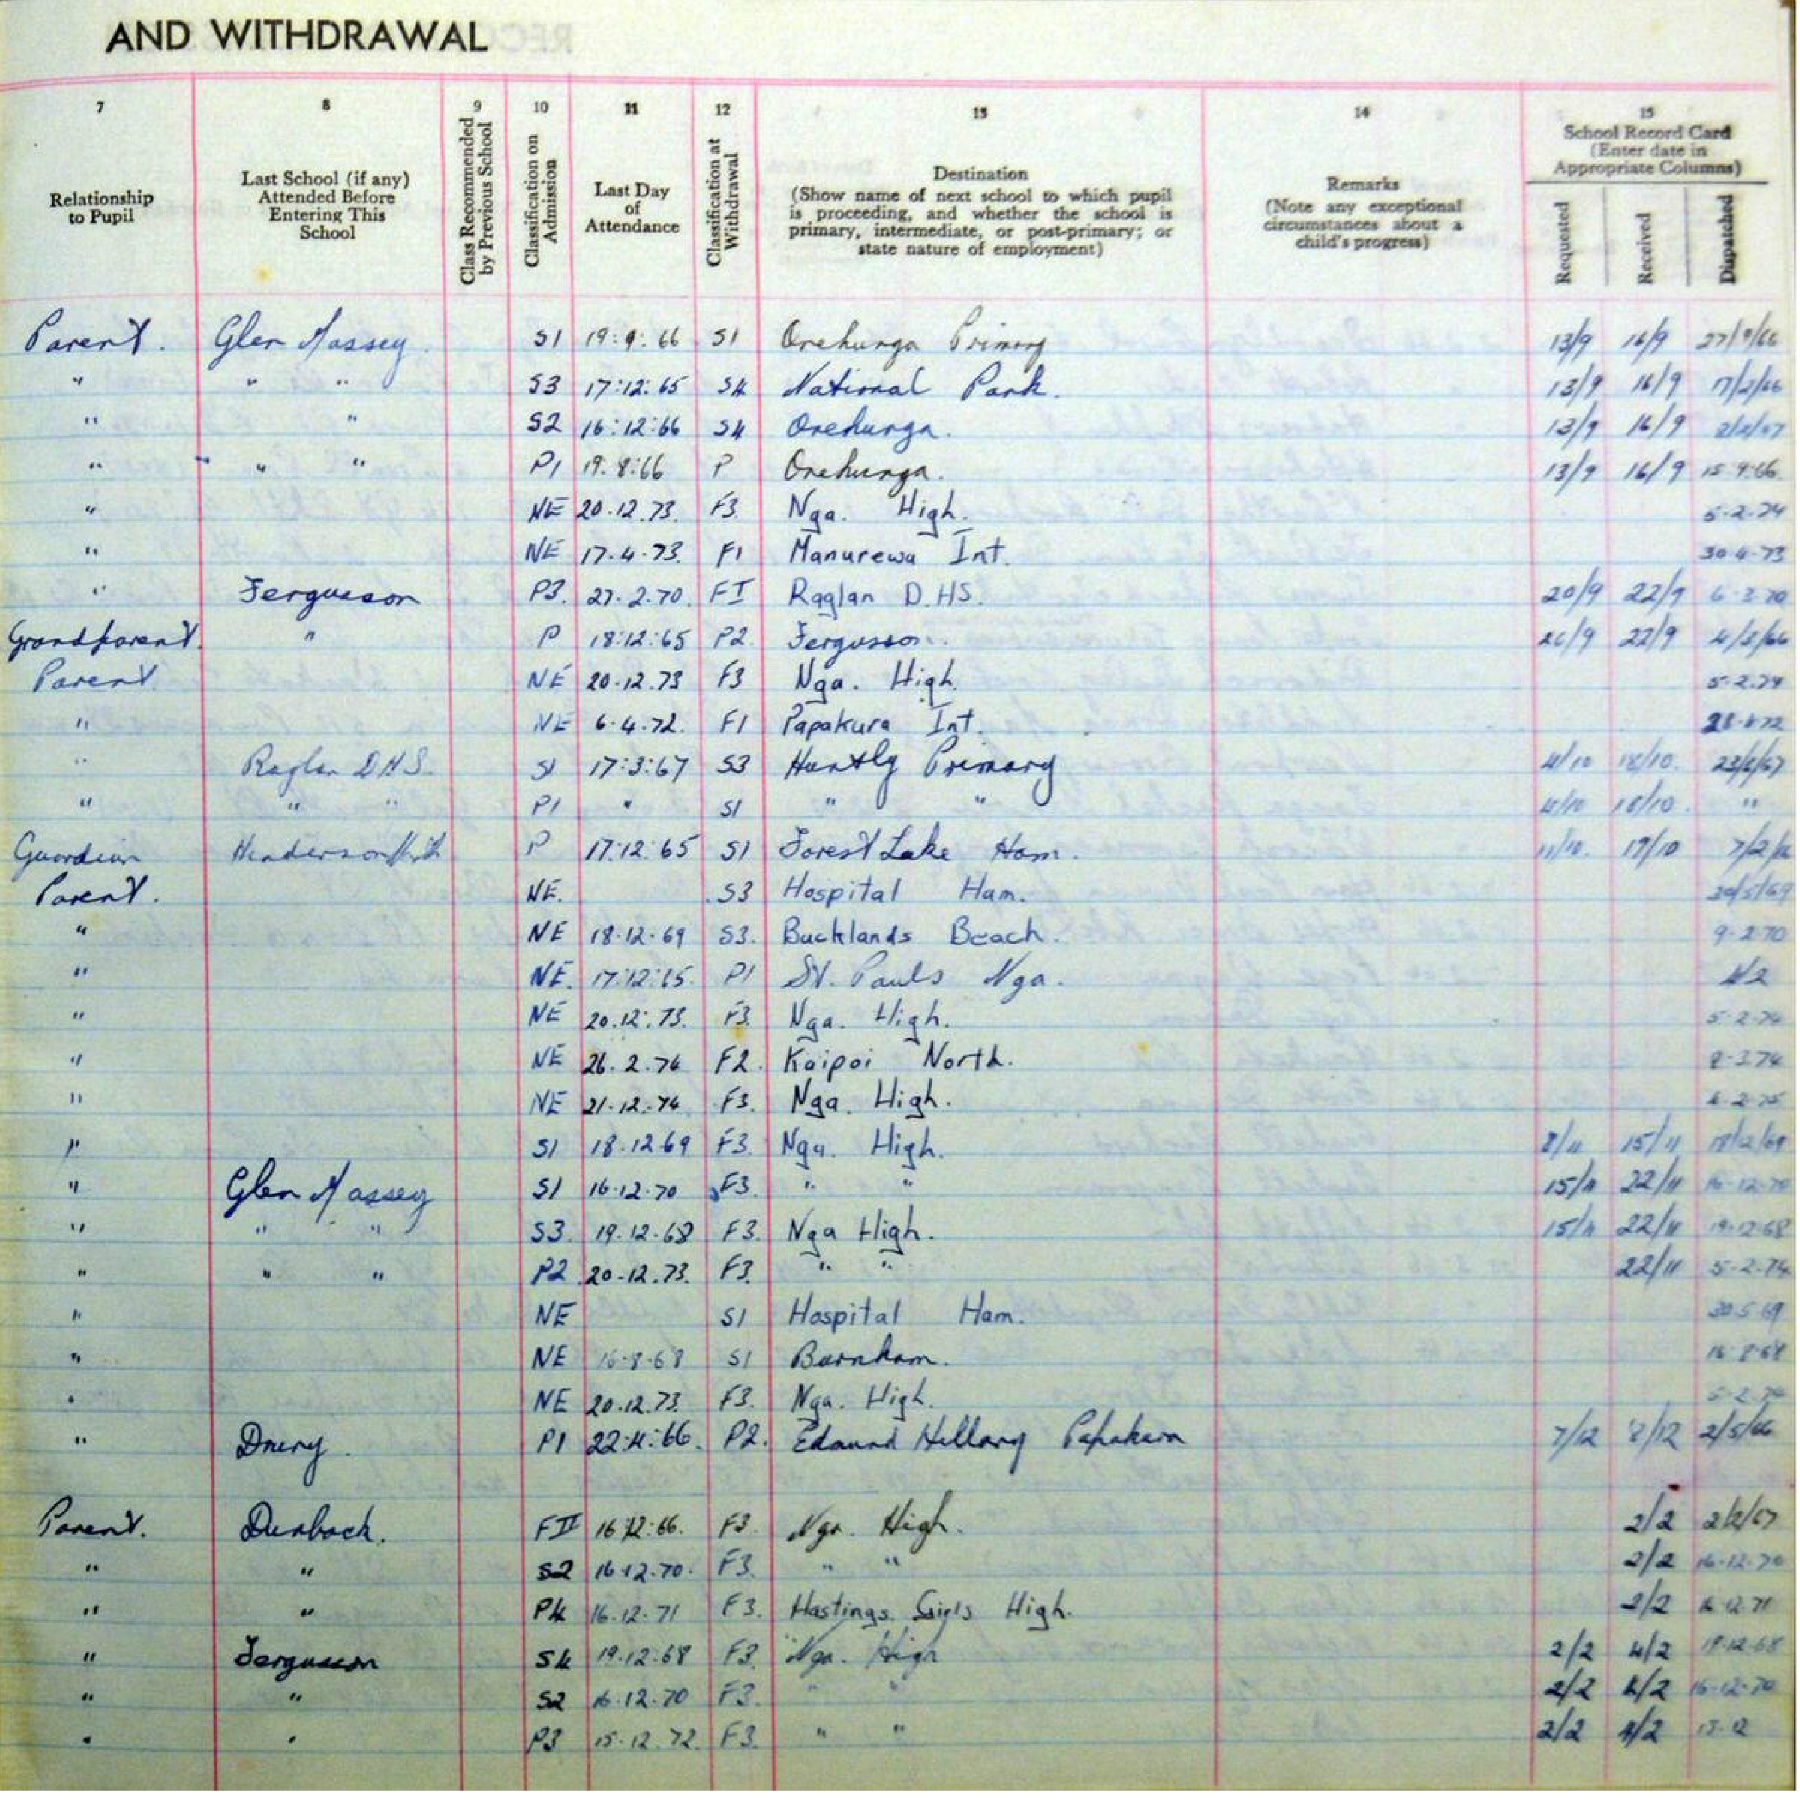 AND WITHDRAWAL
7 8 9 10 11 12 13 14 15
Relationship to Pupil
Last School (if any) Attended Before Entering This School
Class Recommended by Previous School
Classification on Admission
Last Day of Attendance
Classification at Withdrawal
Destination
(Show name of next school to which pupil is proceeding, and whether the school is primary, intermediate, or post-primary; or state nature of employment)
Remarks
(Note any exceptional circumstances about a child's progress)
School Record Card
(Enter date in Appropriate Columns)
Requested Received Dispatched
Parent. Glen Massey S1 19:9:66 S1 Onehunga Primary 13/9 16/9 27/9/66
" " " S3 17:12:65 S4 National Park. 13/9 16/9 17/2/66
" " S2 16:12:66 S4 Onehunga. 13/9 16/9
" " " P1 19:8:66 P Onehunga. 13/9 16/9 15.9.66
" NE 20.12.73. F3 Nga. High. 5-2-74
" NE 17.4.73. F1 Manurewa Int. 30-4-73
" Fergusson P3. 27.2.70. FI Raglan D.HS. 20/9 22/9 6-3-70
Grandparent. " P 18:12:65 P2. Fergusson. 22/9
Parent NE 20.12.73 F3 Nga. High. 5-2.74
" NE 6.4.72. F1 Papakura Int.
" Raglan D.H.S. S1 17:3:67 S3 Huntly Primary 4/10 18/10.
" " " P1 " S1 " " 4/10 18/10. "
Guardian Henderson Nth P 17:12:65 S1 Forest Lake Ham. 11/10. 19/10
Parent. NE. S3 Hospital Ham. 30/5/69
" NE 18-12-69 S3. Bucklands Beach. 9-2-70
" NE. 17:12:65. P1 St. Pauls Nga. 4/2
" NE 20.12.73. F3. Nga. High. 5-2-74
" NE 26.2.74 F2. Kaipoi North.
" NE 21-12-74 F3. Nga. High.
" S1 18.12.69 F3. Nga. High. 8/11 15/11 18/12/69
" Glen Massey S1 16.12.70 F3. " " 15/11 22/11 16-12-70
" " " S3. 19.12.68 F3. Nga High. 15/11 22/11 19-12-68
" " " P2 20-12.73. F3. " " 22/11 5-2.74
" NE S1 Hospital Ham. 30.5.69
" NE 16-8-68 S1 Burnham. 16-8-68
" NE 20.12.73 F3. Nga. High. 5-2-74
" Drury. P1 22:4:66. P2. Edmund Hillary Papakura 7/12 8/12 2/5/66
Parent. Dunback. FII 16:12:66. F3. Nga. High. 2/2 2/2/67
" " S2 16.12.70. F3. " " 2/2 16-12-70
" " P4 16.12.71 F3. Hastings Girls High. 2/2 16.12.71
" Fergusson S4 19.12.68 F3. Nga. High 2/2 4/2 19-12-68
" " S2 16.12.70 F3. " " 2/2 4/2 16-12-70
" " P3 15.12.72. F3. " " 2/2 4/2 15-12